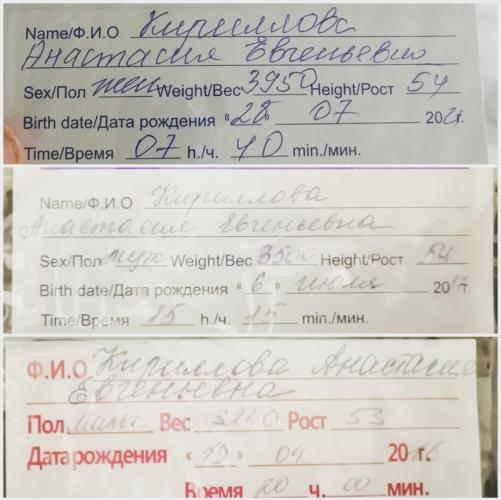 Name/Ф.И.О Кириллова
Анастасия Евгеньевна
Sex/Пол жен Weight/Вес 3950 Height/Рост 54
Birth date/Дата рождения «28» 07 202 г.
Time/Время 07 h./ч. 40 min./мин.
Name/Ф.И.О Кириллова
Анастасия Евгеньевна
Sex/Пол муж Weight/Вес 3500 Height/Рост 54
Birth date/Дата рождения «6» июля 2017г.
Time/Время 15 h./ч. 15 min./мин.
Ф.И.О Кириллова Анастасия
Евгеньевна
Пол мальч. Вес 3240 Рост 53
Дата рождения «19» 04 2016
Время 20 ч. 00 мин.